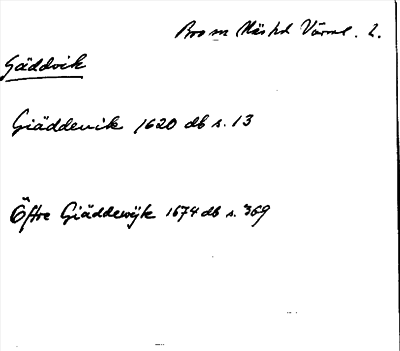 Bro sn Näs hd Värml. 2.
Gäddvik
Giäddevik 1620 db s. 13
Öftre Giäddewÿk 1674 db s. 369